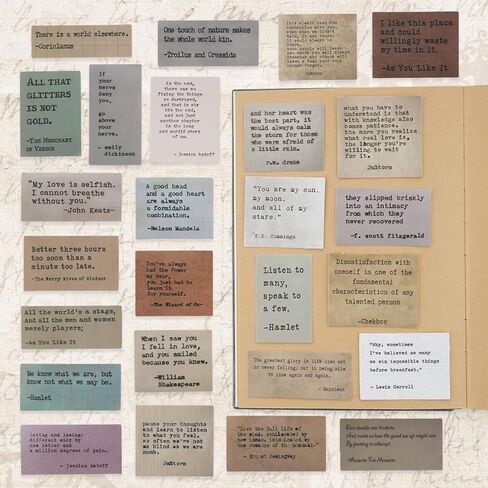 There is a world elsewhere.
-Coriolanus
One touch of nature makes
the whole world kin.
-Troilus and Cressida
JmStorm
I like this place
and could
willingly waste
my time in it.
-As You Like It
ALL THAT
GLITTERS
IS NOT
GOLD.
-THE MERCHANT
OF VENICE
If
your
nerve
deny
you,
go
above
your
nerve.
- emily
dickinson
in the end,
there was no
fixing the things
we destroyed,
and that is why
it's the end,
and not just
another chapter
in the long
and sordid story
of us.
- jessica katoff
and her heart was
the best part, it
would always calm
the storm for those
who were afraid of
a little rain.
r.m. drake
what you have to
understand is that
with knowledge also
comes patience.
the more you realize
what real love is,
the longer you're
willing to wait
for it.
JmStorm
"My love is selfish.
I cannot breathe
without you."
-John Keats-
A good head
and a good heart
are always
a formidable
combination.
-Nelson Mandela
"You are my sun,
my moon,
and all of my
stars."
E.E. Cummings
they slipped briskly
into an intimacy
from which they
never recovered
-f. scott fitzgerald
Better three hours
too soon than a
minute too late.
-The Merry Wives of Windsor
You've always
had the Power
my dear,
you just had to
learn it
for yourself.
-The Wizard of Oz-
Listen to
many,
speak to
a few.
-Hamlet
Dissatisfaction with
oneself is one of the
fundamental
characteristics of any
talented person
-Chekhov
All the world's a stage,
And all the men and women
merely players;
-As You Like It
When I saw you
I fell in love,
and you smiled
because you knew.
-William
Shakespeare
The greatest glory in life lies not
in never falling, but in being
able to rise again and again.
- Napoleon
"Why, sometimes
I've believed as many
as six impossible things
before breakfast."
- Lewis Carroll
We know what we are, but
know not what we may be.
-Hamlet
loving and losing:
different only by
one letter and
a million degrees of pain.
- jessica katoff
pause your thoughts
and learn to listen
to what you feel,
so often we're not
as blind as we are
numb.
JmStorm
- Ernest Hemingway
Our doubts are traitors
And make us lose the good we oft might win
By fearing to attempt.
-Measure For Measure